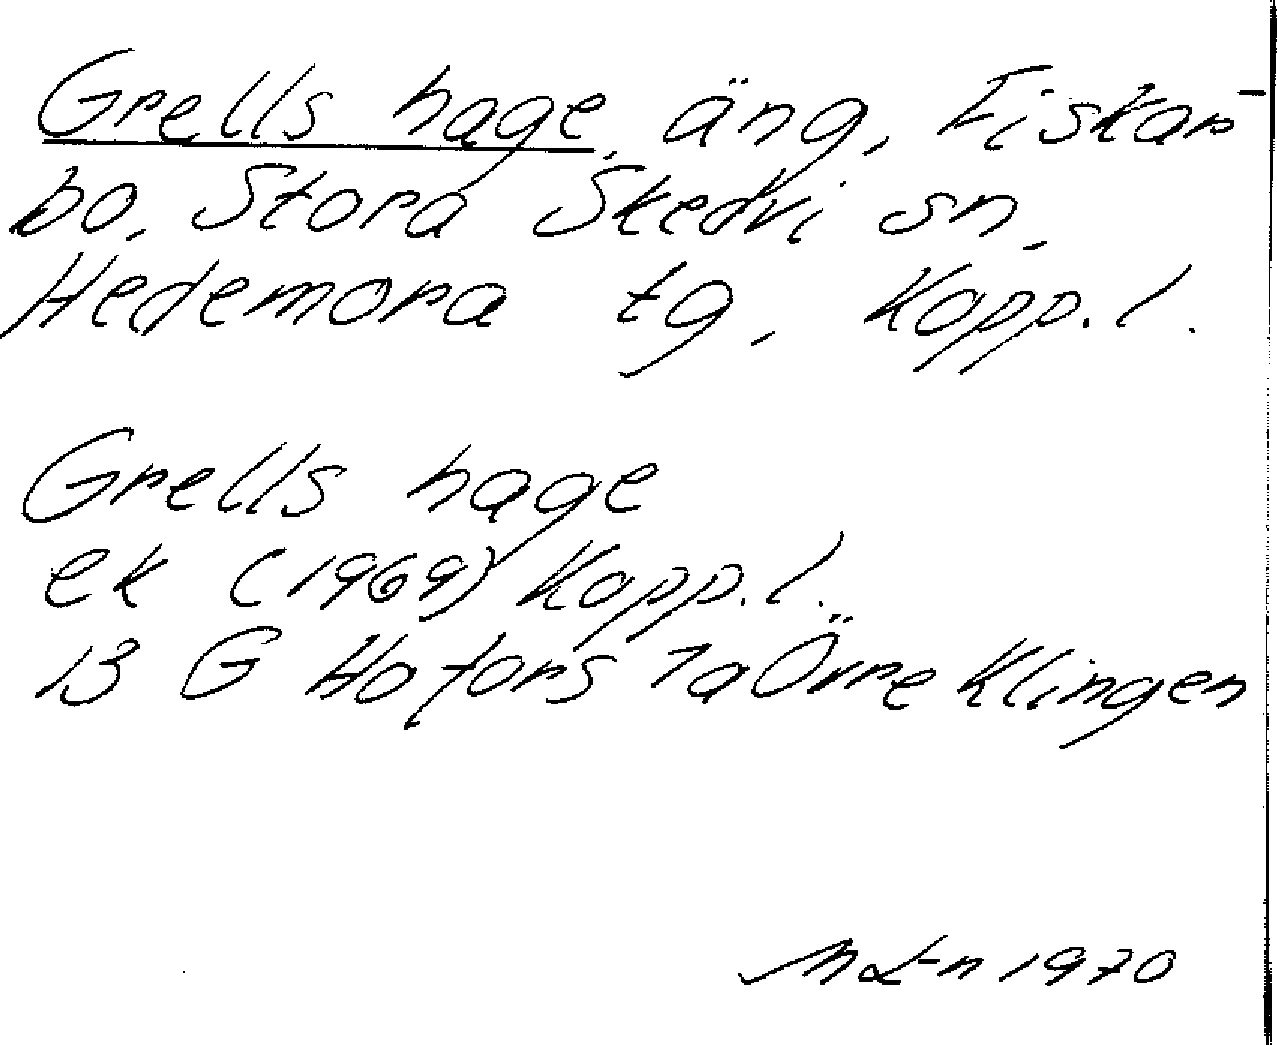 Grells hage, äng, Fiskar-
bo, Stora Skedvi sn,
Hedemora tg, Kopp. l.
Grells hage
ek (1969) Kopp. l.
13 G Hofors 7a Övre Klingen
1970